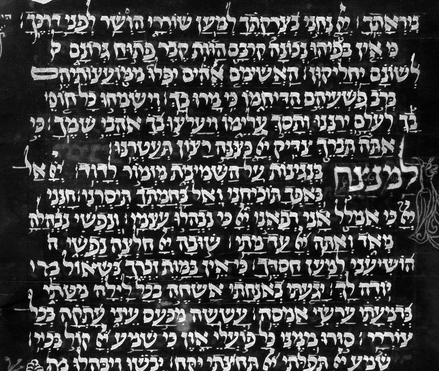 ביראתך: יי נחני בצדקתך למען שוררי הושר לפני דרכך:
כי אין בפיהו נכונה קרבם הוות קבר פתוח גרונם ל
לשונם יחליקון: האשימם אלהים יפלו ממועצותיהם
ברב פשעיהם הדיחמו כי מרו בך: וישמחו כל חוסי
בך לעולם ירננו ותסך עלימו ויעלצו בך אהבי שמך: כי
אתה תברך צדיק יי כצנה רצון תעטרנו:
למנצח בנגינות על השמינית מזמור לדוד: יי אל
באפך תוכיחני ואל בחמתך תיסרני: חנני
יי כי אמלל אני רפאני יי כי נבהלו עצמי: ונפשי נבהלה
מאד ואתה יי עד מתי: שובה יי חלצה נפשי ה
הושיעני למען חסדך: כי אין במות זכרך בשאול מי
יודה לך: יגעתי באנחתי אשחה בכל לילה מטתי
בדמעתי ערשי אמסה: עששה מכעס עיני עתקה בכל
צוררי: סורו ממני כל פועלי און כי שמע יי קול בכיי:
שמע יי תפלתי יי תחינתי יקח: יבשו ויבהלו